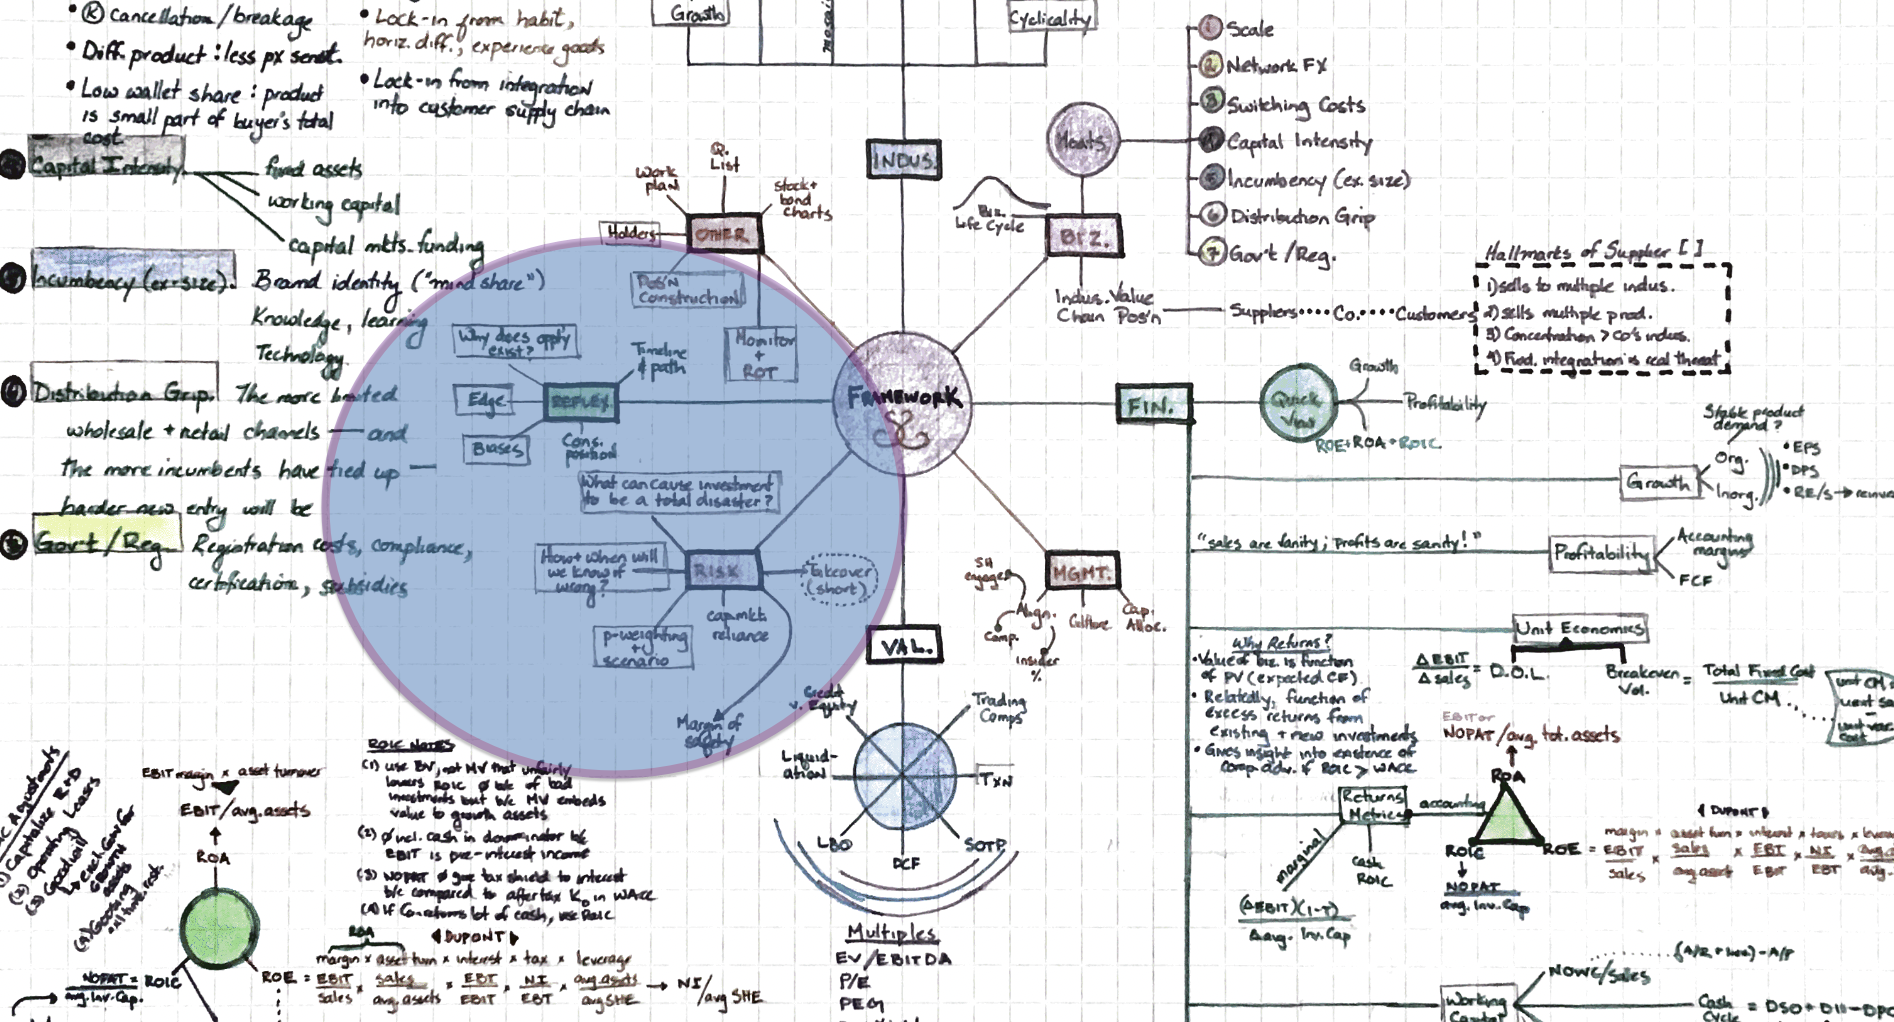 Ⓚ Cancellation/breakage
• Diff. product : less px senst.
• Low wallet share : product
is small part of buyer's total
cost.
• Lock-in from habit,
horiz. diff., experience goods
• Lock-in from integration
into customer supply chain
Growth
Cyclicality
Capital Intensity
fixed assets
working capital
capital mkts. funding
Incumbency (ex-size).
Brand identity ("mind share")
Knowledge, learning
Technology.
Distribution Grip.
The more limited
wholesale + retail channels — and
the more incumbents have tied up —
harder new entry will be
Gov't / Reg.
Registration costs, compliance,
certification, subsidies
INDUS.
Moats
1 Scale
2 Network FX
3 Switching Costs
4 Capital Intensity
5 Incumbency (ex. size)
6 Distribution Grip
7 Gov't / Reg.
BIZ.
Biz.
Life Cycle
Indus. Value
Chain Pos'n
Suppliers •••• Co. •••• Customers
Hallmarks of Supplier [ ]
1) sells to multiple indus.
2) sells multiple prod.
3) Concentration > co's indus.
4) Fwd. integration is real threat
OTHER
Work
plan
Q.
List
Stock +
bond
charts
Holders
Pos'n
Construction
Monitor
+
ROT
FRAMEWORK
REFLEX.
Why does opp'ty
exist?
Timeline
& path
Edge
Biases
Cons.
position
RISK
What can cause investment
to be a total disaster?
How + when will
we know if
wrong?
Takeover
(short)
p-weighting
+
scenario
cap. mkt.
reliance
Margin of
safety
FIN.
Quick
View
Growth
Profitability
ROE + ROA + ROIC
Stable product
demand?
Growth
Org.
Inorg.
• EPS
• DPS
• RE/S →
"sales are vanity; profits are sanity!"
Profitability
Accounting
margins
FCF
MGMT.
SH
engage
Align.
Comp.
Insider
%
Culture
Cap.
Alloc.
VAL.
Credit
v. Equity
Trading
Comps
Liquid-
ation
TXN
LBO
DCF
SOTP
Multiples
EV/EBITDA
P/E
PEG
Unit Economics
ΔEBIT
Δ sales
= D.O.L.
Breakeven
Vol.
= Total Fixed Cost
Unit CM
Why Returns?
• Value of biz. is function
of PV (expected CF)
• Relatedly, function of
excess returns from
existing + new investments
• Gives insight into existence of
comp. adv. if ROIC > WACC
EBIT or
NOPAT / avg. tot. assets
ROA
Returns
Metrics
accounting
marginal
Cash
ROIC
(ΔEBIT)(1-T)
Δ avg. Inv. Cap
ROIC
NOPAT
avg. Inv. Cap
DUPONT
margin × asset turn × interest × taxes ×
ROE = EBIT × sales × EBT × NI ×
sales avg asset EBIT EBT avg.
NOWC/sales
(A/R + Inv) - A/P
Working
Capital
Cash
Cycle = DSO + DII - DPO
ROIC NOTES
(1) use BV, not MV that unfairly
lowers ROIC
investments but b/c MV embeds
value to growth assets
(2) Ø incl. cash in denominator b/c
EBIT is pre-interest income
(3) NOPAT Ø give tax shield to interest
b/c compared to aftertax K_D in WACC
(4) If Co. returns lot of cash, use ROIC
Adjustments
(1) Capitalize R+D
(2) Operating Leases
(3) Goodwill
EBIT margin × asset turnover
EBIT/avg. assets
ROA
NOPAT
avg. Inv. Cap.
= ROIC
ROA
DUPONT
margin × asset turn × interest × tax × leverage
ROE = EBIT × sales × EBT × NI × avg assets → NI
sales avg. assets EBIT EBT avg SHE /avg SHE